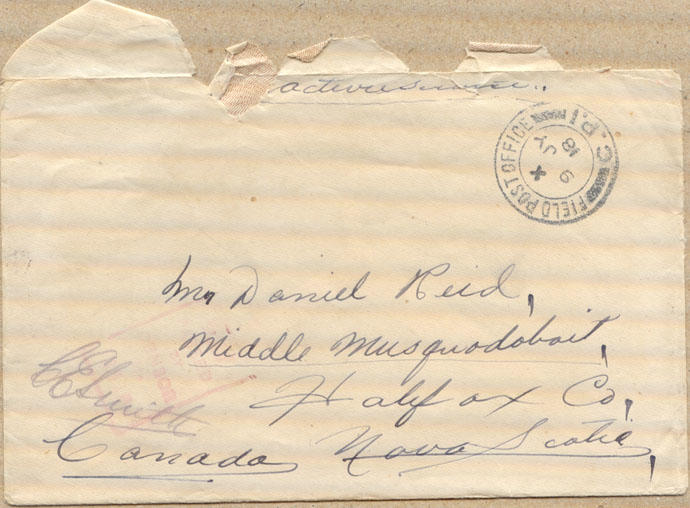 active service..
FIELD POST OFFICE
C.P.1
9 JY 18
Mr Daniel Reid,
Middle Musquodoboit,
Halifax Co,
Canada Nova Scotia,
CESmith